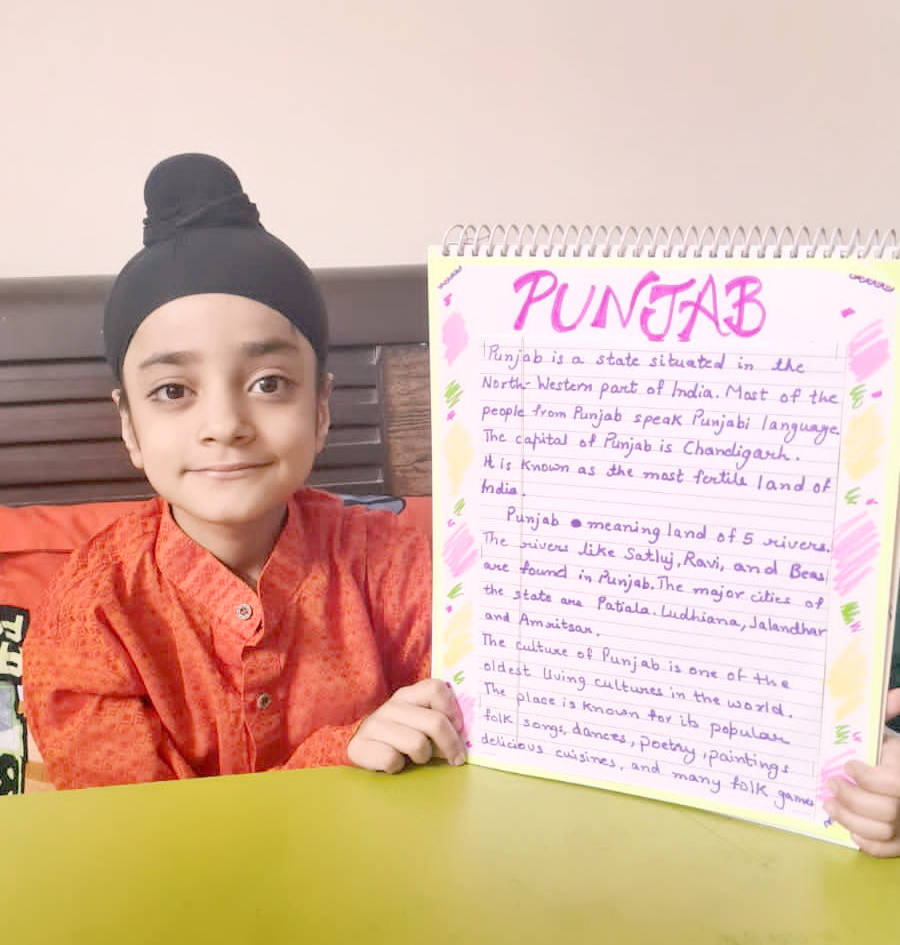 PUNJAB
Punjab is a state situated in the
North-Western part of India. Most of the
people from Punjab speak Punjabi language.
The capital of Punjab is Chandigarh.
It is known as the most fertile land of
India.
Punjab meaning land of 5 rivers.
The rivers like Satluj, Ravi, and Beas
are found in Punjab. The major cities of
the state are Patiala. Ludhiana, Jalandhar
and Amritsar.
The culture of Punjab is one of the
oldest living cultures in the world.
The place is known for its popular
folk songs, dances, poetry, paintings
delicious cuisines, and many folk games